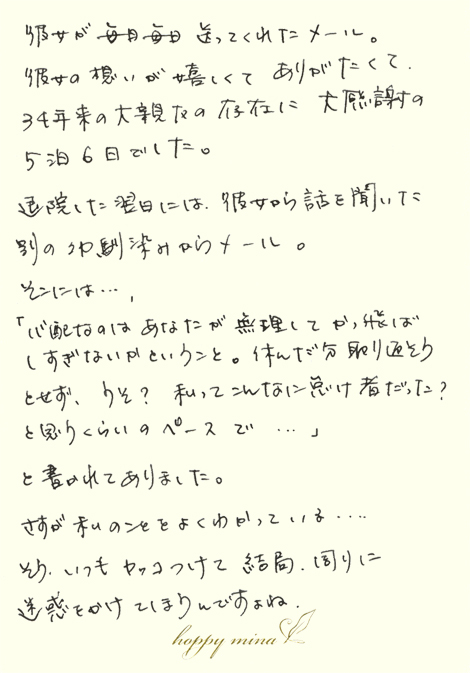 彼女が毎日毎日送ってくれたメール。
彼女の想いが嬉しくてありがたくて.
34年来の大親友の存在に大感謝の
5泊6日でした。
退院した翌日には、彼女から話を聞いた
別の幼馴染みからメール。
そこには…,
「心配なのはあなたが無理してかっ飛ば
しすぎないかということ。休んだ分取り返そう
とせず、うそ？私ってこんなに怠け者だった？
と思うくらいのペースで…」
と書かれてありました。
さすが私のことをよくわかっている....
そう、いつもカッコつけて結局、周りに
迷惑をかけてしまうんですよね.
happy mina